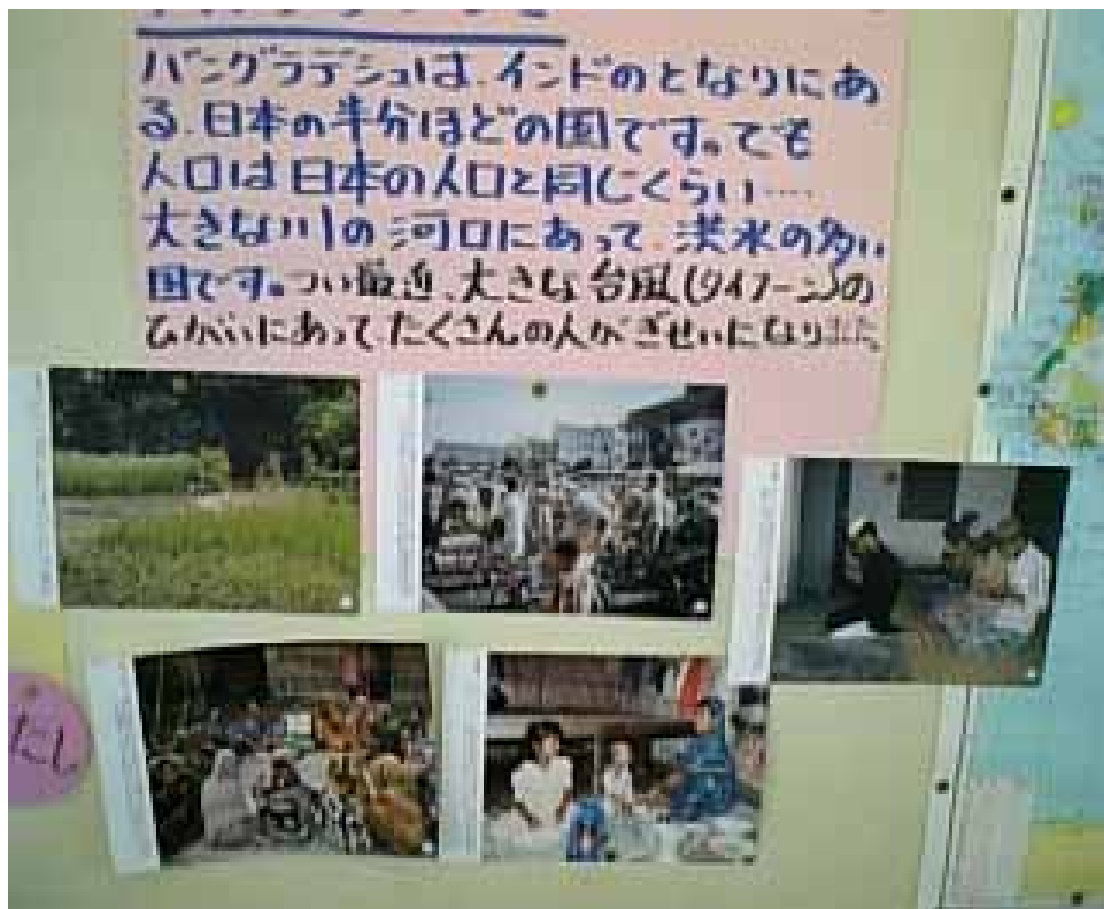 バングラデシュは、インドのとなりにあ
る、日本の半分ほどの国です。でも
人口は日本の人口と同じくらい……
大きな川の河口にあって、洪水の多い
国です。つい最近、大きな台風(タイフーン)の
ひがいにあって、たくさんの人がぎせいになりました。
だし